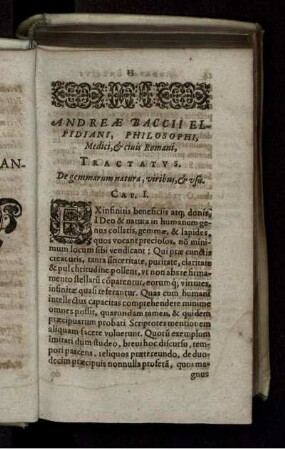 AN-
ANDREÆ BACCII EL-
PIDIANI, PHILOSOPHI,
Medici, & ciuis Romani,
TRACTATVS.
De gemmarum natura, viribus, & vsu.
CAP. I.
EXinfinitis beneficiis atq; donis,
à Deo & natura in humanum ge-
nus collatis, gemmæ, & lapides,
quos vocant preciosos, nō mini-
mum locum sibi vendicant: Qui præ cunctis
creaturis, tanta sinceritate, puritate, claritate
& pulchritudine pollent, vt non abs re firma-
mento stellarū cōparentur, eorumq́; virtutes,
infinitæ quasi referantur. Quas cum humani
intellectus capacitas comprehendere minime
omnes possit, quarundam tamen, & quidem
præcipuarum probati Scriptores mentionem
aliquam facere voluerunt. Quorū exemplum
imitari dum studeo, breui hoc discursu, tem-
pori parcens, reliquos prætereundo, de duo-
decim præcipuis nonnulla proferā, quos ma-
gnus